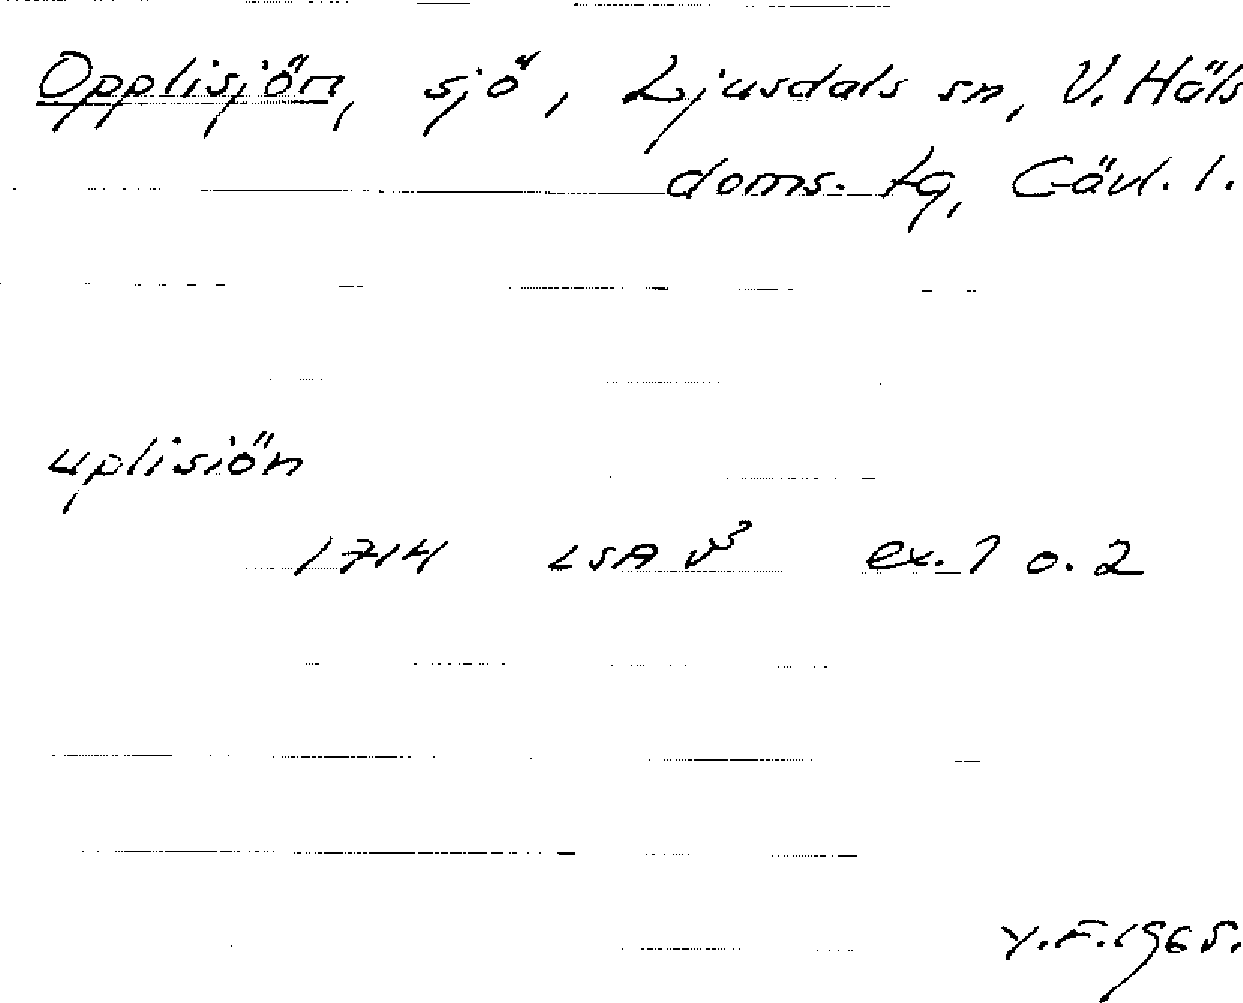 Opplisjön, sjö, Ljusdals sn, V. Häls
doms. tg, Gävl. l.
uplisiön
1714 LSA v³ ex. 1 o. 2
Y.F. 1965.